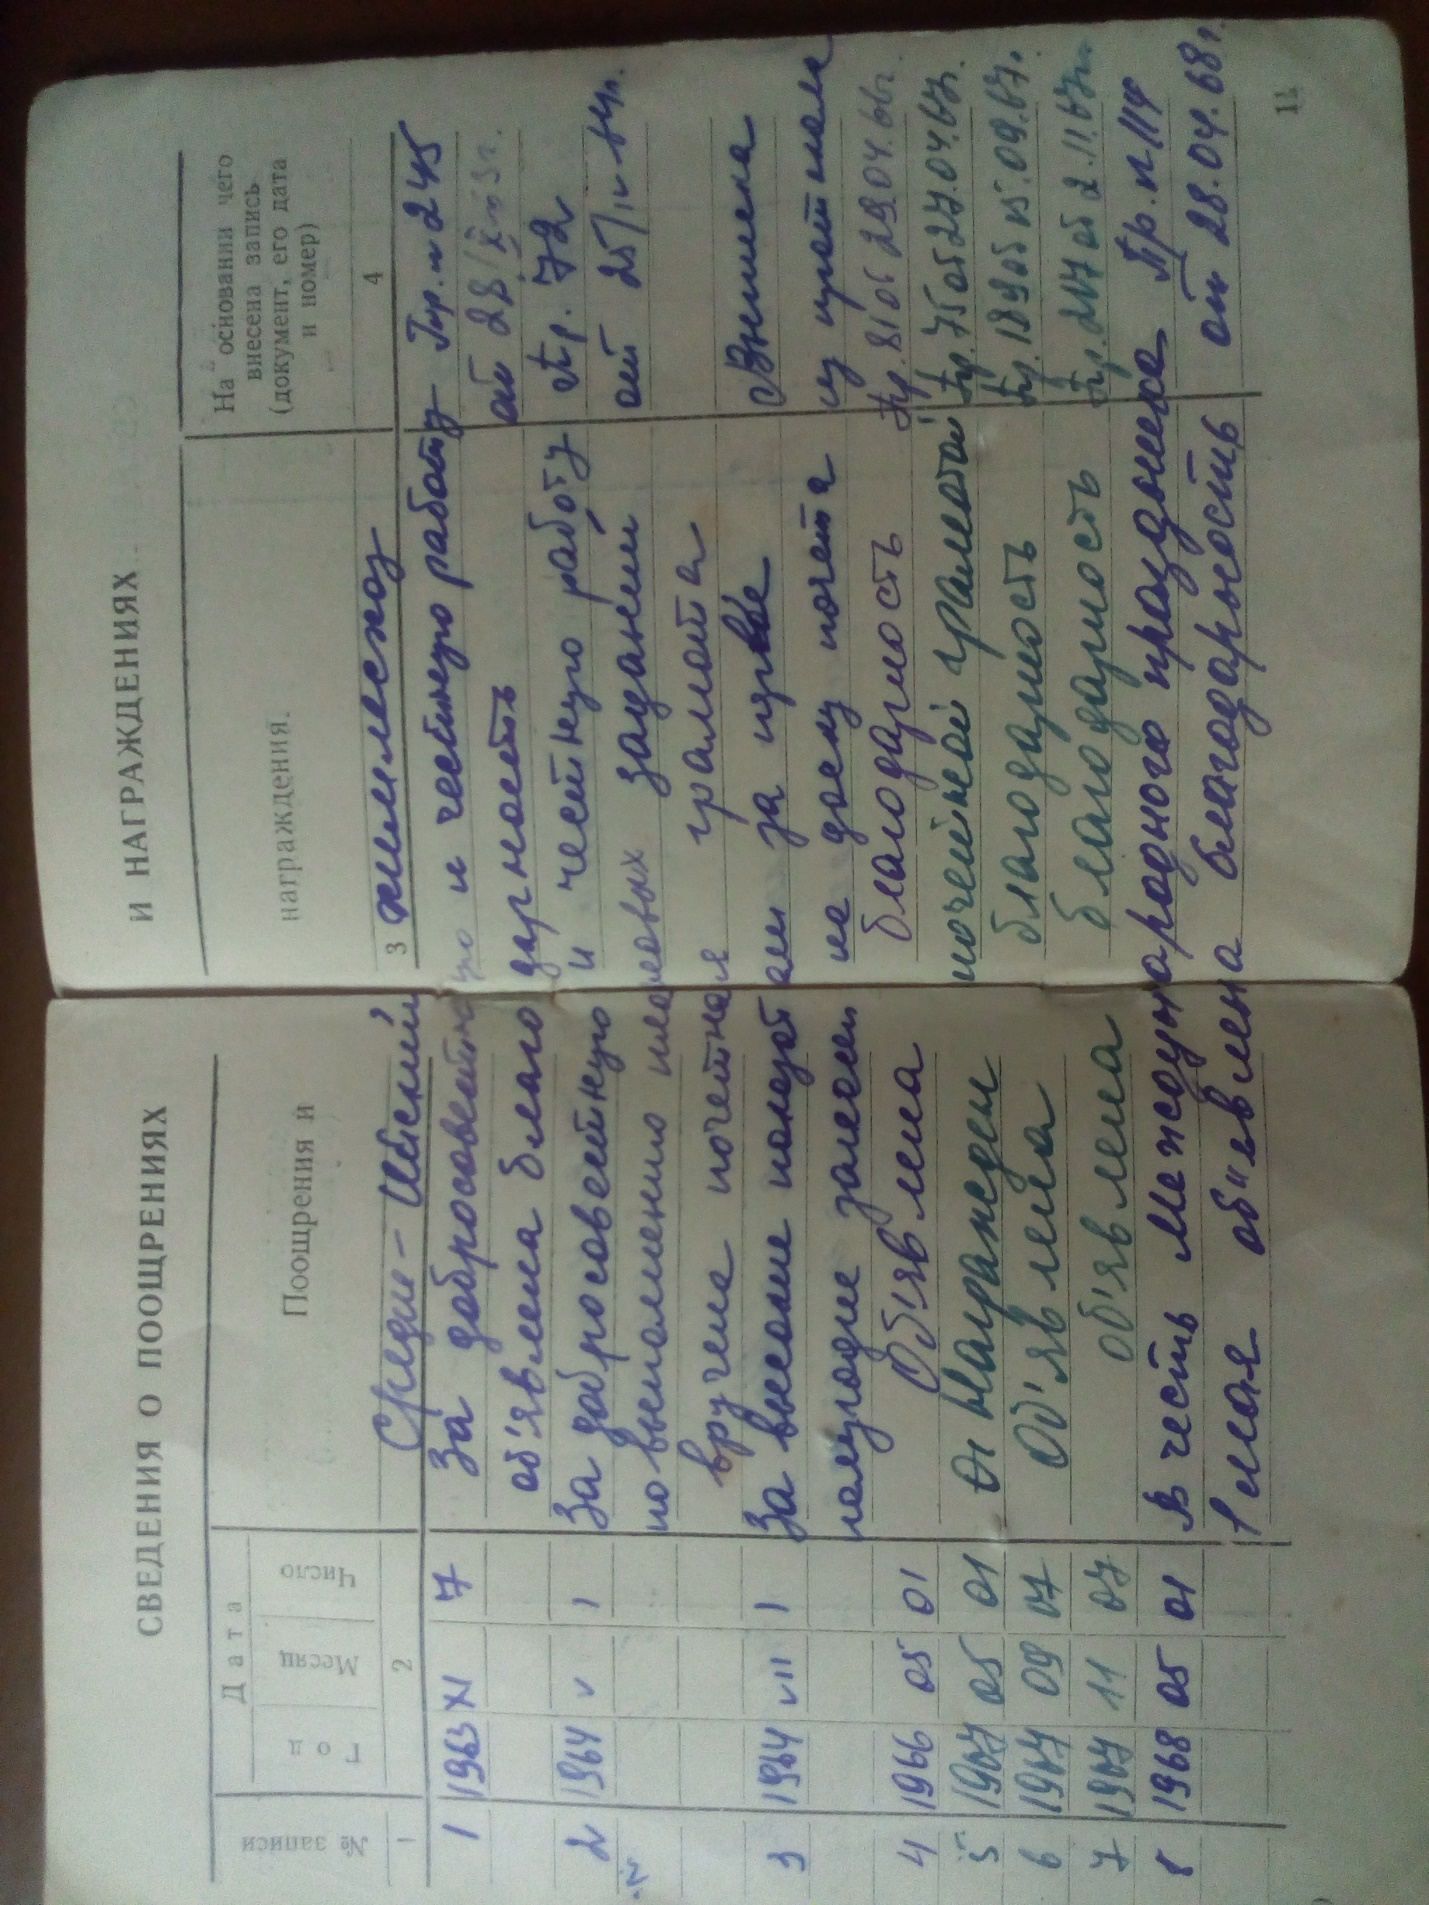 СВЕДЕНИЯ О ПООЩРЕНИЯХ И НАГРАЖДЕНИЯХ
№ записи
Дата
Год
Месяц
Число
Поощрения и награждения.
На основании чего
внесена запись
(документ, его дата
и номер)
1 2 3 4
Средне-Икский химлесхоз
1 1963 XI 7 За добросовестную и честную работу Пр. н 245
об'явлена благодарность от 28/X 63г.
2 1964 V 1 За добросовестную и честную работу Пр. 72
по выполнению плановых заданий от 25/IV 64г.
вручена почетная грамота
3 1964 VII 1 За высокие показатели за первое Выписка
полугодие занесен на доску почета из протокола
4 1966 05 01 Об'явлена благодарность Пр. 81 от 29.04.66г.
5 1967 05 01 Награжден почетной грамотой Пр. 75 от 27.04.67г.
6 1967 09 07 Об'явлена благодарность Пр. 189 от 15.09.67г.
7 1967 11 07 Об'явлена благодарность Пр. 217 от 2.11.67г.
8 1968 05 01 В честь Международного праздника Пр. н 114
1 мая об"явлена благодарность от 28.04.68г.
11